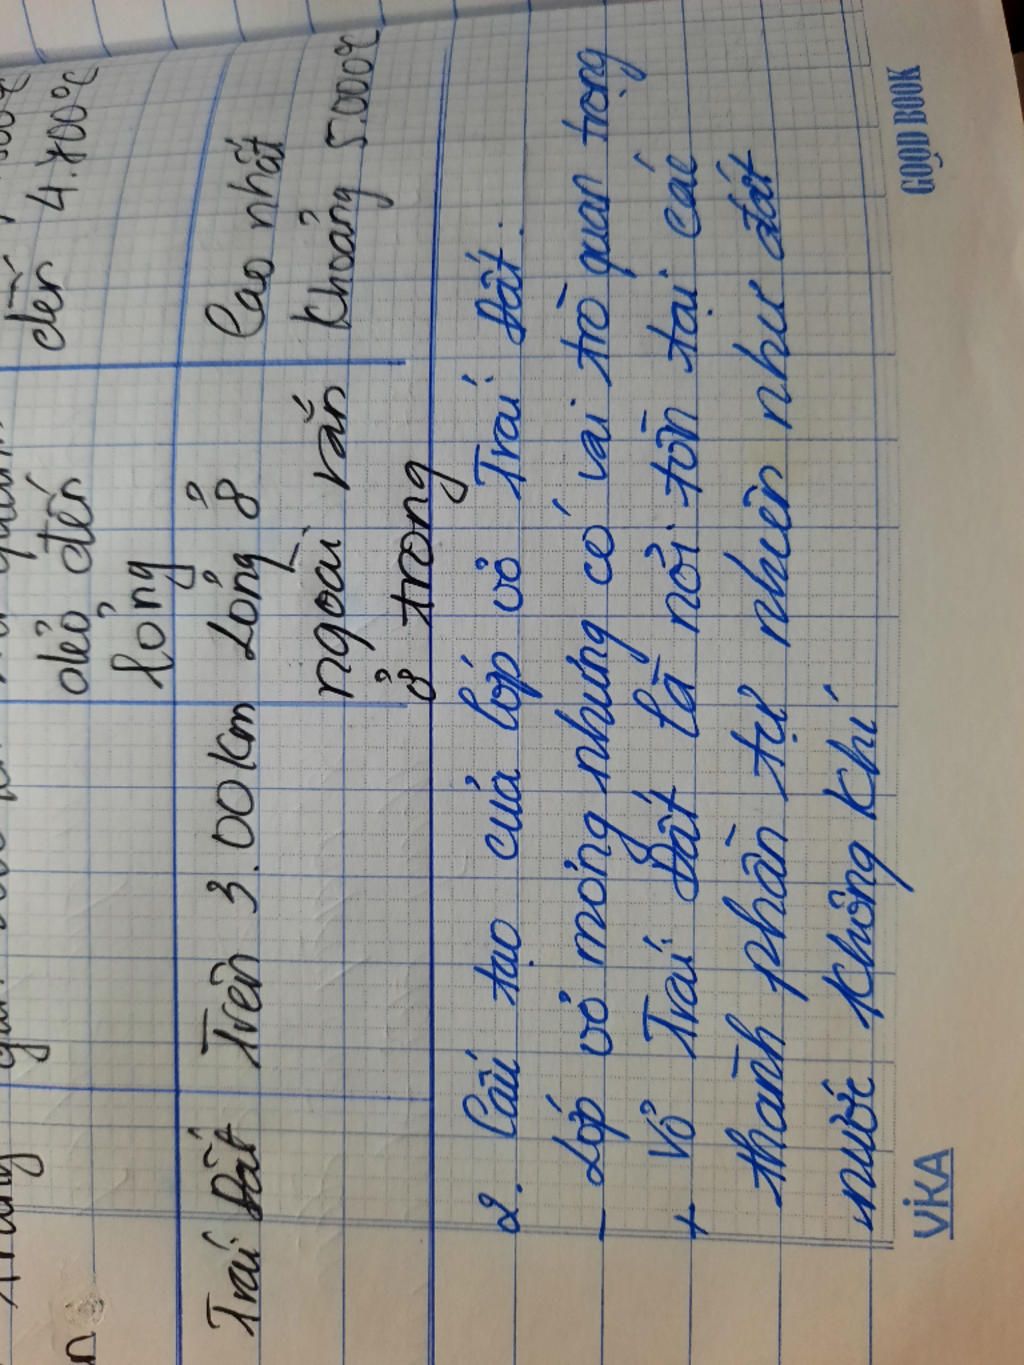 đến 4.700°C
dẻo đến
lỏng
Trái Đất Trên 3.00km Lỏng ở Cao nhất
ngoài rắn Khoảng 5.000°C
ở trong
2. Cấu tạo của lớp vỏ Trái Đất.
- Lớp vỏ mỏng nhưng có vai trò quan trọng
+ Vỏ Trái Đất là nơi tồn tại các
thành phần tự nhiên như đất
nước không khí
VIKA GOOD BOOK